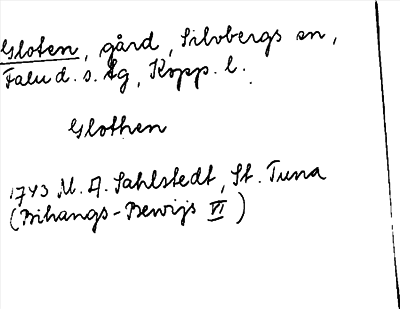 Gloten, gård, Silvbergs sn,
Falu d. s. tg, Kopp. l.
Glothen
1743 M. A. Sahlstedt, St. Tuna
(Bihangs-Bewijs VI)